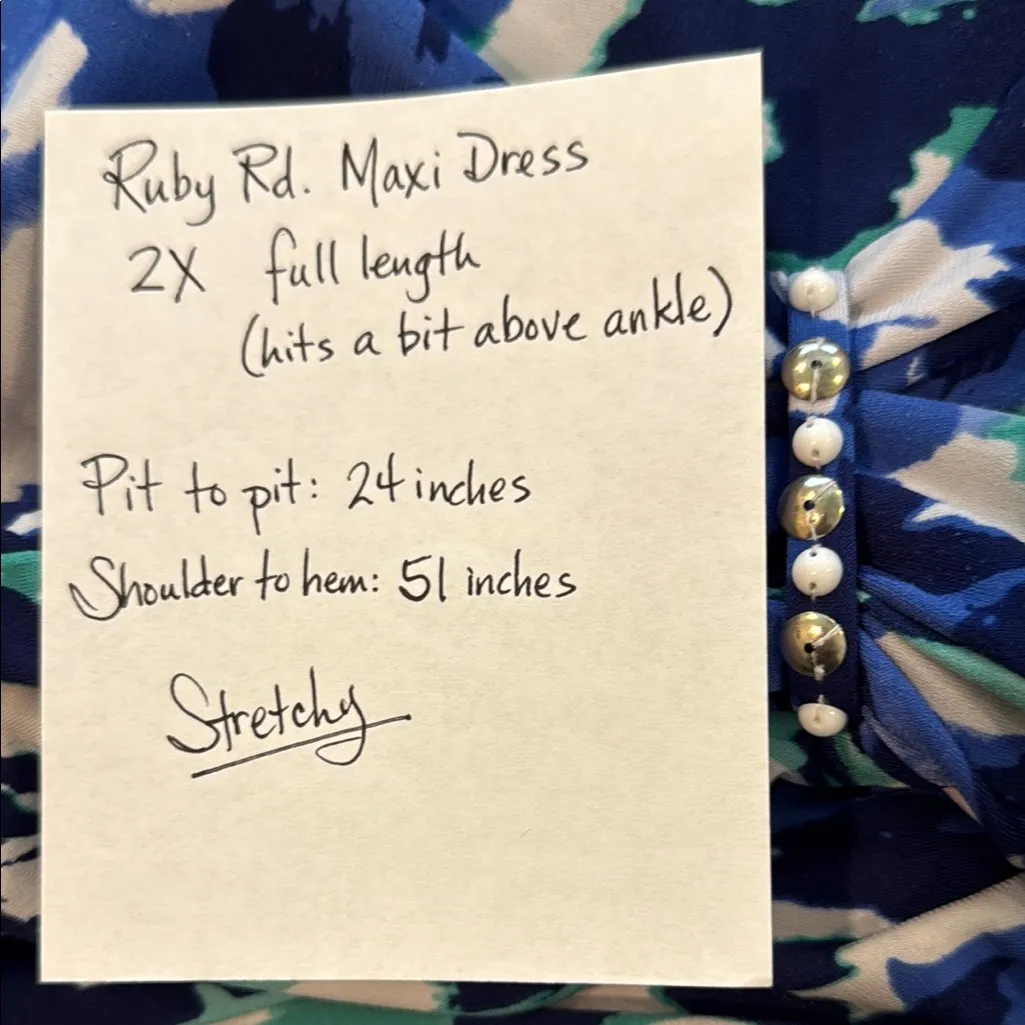 Ruby Rd. Maxi Dress
2X full length
(hits a bit above ankle)
Pit to pit: 24 inches
Shoulder to hem: 51 inches
Stretchy